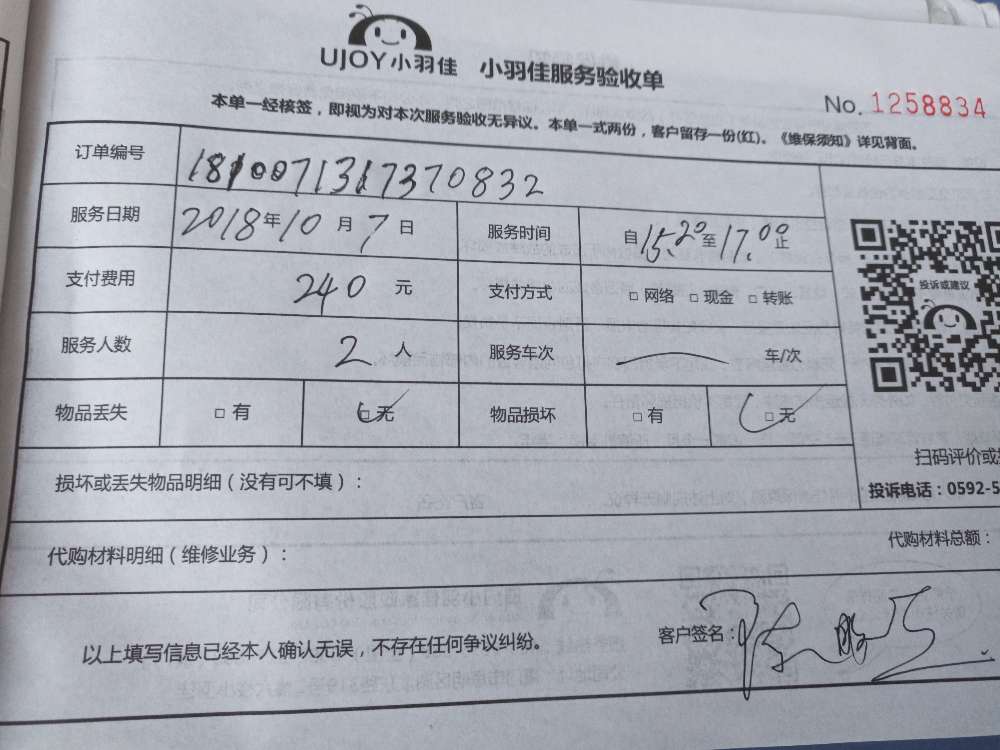 UJOY小羽佳 小羽佳服务验收单
No. 1258834
本单一经核签，即视为对本次服务验收无异议。本单一式两份，客户留存一份(红)。《维保须知》详见背面。
订单编号 181007131737​0832
服务日期 2018年10月7日 服务时间 自15.20至17.00止
支付费用 240元 支付方式 □ 网络 □ 现金 □ 转账
投诉或建议
服务人数 2人 服务车次 车/次
物品丢失 □ 有 □ 无 物品损坏 □ 有 □ 无
扫码评价或
损坏或丢失物品明细（没有可不填）：
投诉电话：0592-5
代购材料明细（维修业务）： 代购材料总额：
以上填写信息已经本人确认无误，不存在任何争议纠纷。 客户签名：